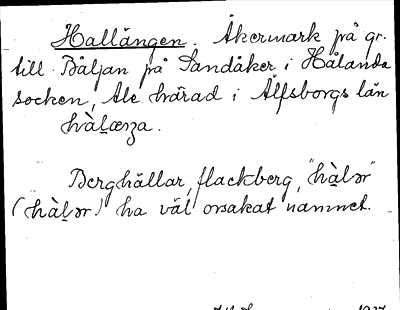 Hallängen. Åkermark på gr.
till Båljan på Sandåker i Hålanda
socken, Ale härad i Älfsborgs län
hàl̲æŋa.
Berghällar, flackberg, "hàl̲ər"
(hàl̲ər) ha väl orsakat namnet.